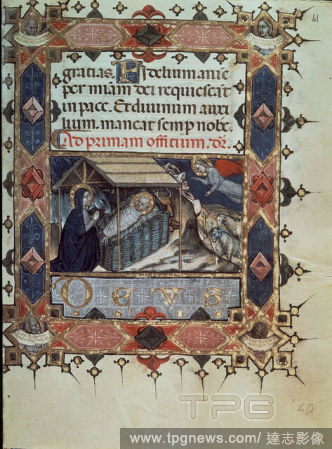 gratias. Fidelium anie
per miam dei requiescat
in pace. Et divinum auxi
lium. maneat semp nobc.
Ad primam officium. d͠e.
DEUS
TPG
www.tpgnews.com/ 達志影像